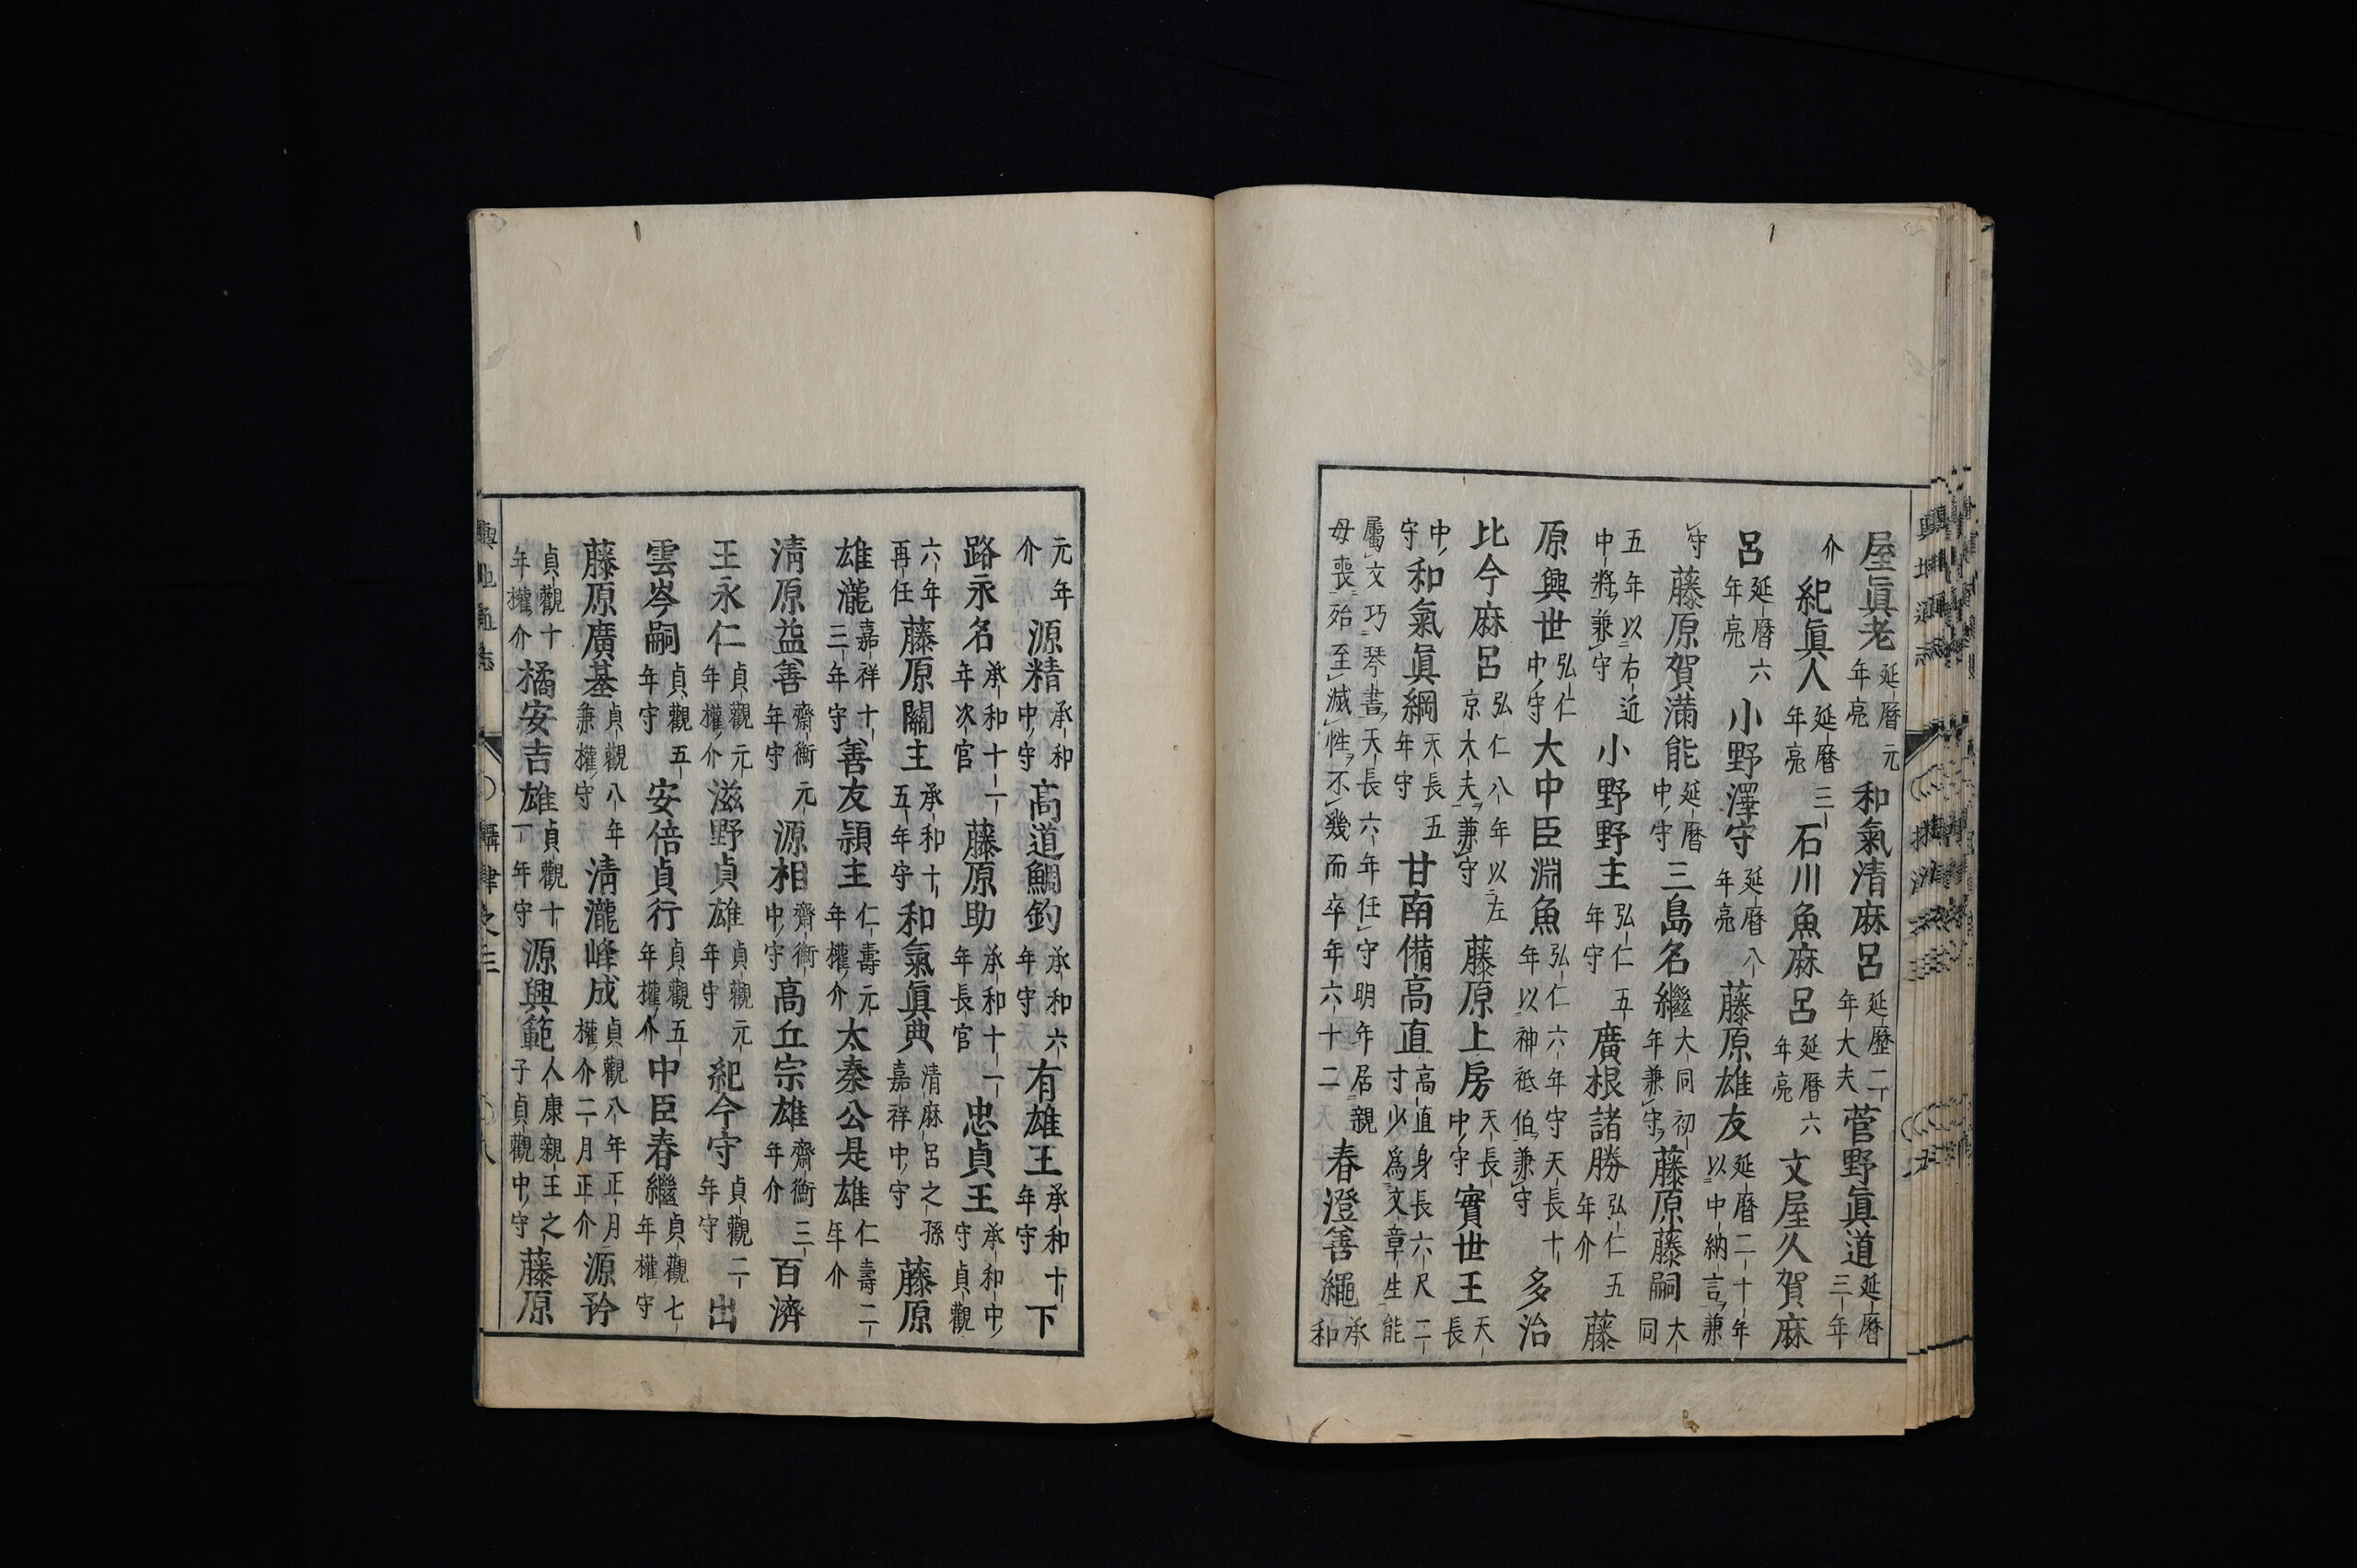 屋眞老延曆元年亮 和氣清麻呂延歷二年大夫 菅野眞道延曆三年
介 紀眞人延曆三年亮 石川魚麻呂延曆六年亮 文屋久賀麻
呂延曆六年亮 小野澤守延曆八年亮 藤原雄友延曆二十年以中納言兼
守 藤原賀滿能延曆中守 三島名繼大同初年兼守 藤原藤嗣大同
五年以右近中將兼守 小野野主弘仁五年守 廣根諸勝弘仁五年介 藤
原興世弘仁中守 大中臣淵魚弘仁六年守天長十年以神祗伯兼守 多治
比今麻呂弘仁八年以左京大夫兼守 藤原上房天長中守 實世王天長
中守 和氣眞綱天長五年守 甘南備高直高直身長六尺二寸少爲文章生能
屬文巧琴書天長六年任守明年居親母喪殆至滅性不幾而卒年六十二 春澄善繩承和
元年介 源精承和中守 高道鯛釣承和六年守 有雄王承和十年守 下
路永名承和十一年次官 藤原助承和十一年長官 忠貞王承和中守貞觀
六年再任 藤原關主承和十五年守 和氣眞典清麻呂之孫嘉祥中守 藤原
雄瀧嘉祥十三年守 善友頴主仁壽元年權介 太秦公是雄仁壽二年介
清原益善齋衡元年守 源相齋衡中守 高丘宗雄齋衡三年介 百濟
王永仁貞觀元年權介 滋野貞雄貞觀元年守 紀今守貞觀二年守 出
雲岑嗣貞觀五年守 安倍貞行貞觀五年權介 中臣春繼貞觀七年權守
藤原廣基貞觀八年兼權守 清瀧峰成貞觀八年正月權介二月正介 源矜
貞觀十年權介 橘安吉雄貞觀十一年守 源興範人康親王之子貞觀中守 藤原
輿地通志 攝津之三